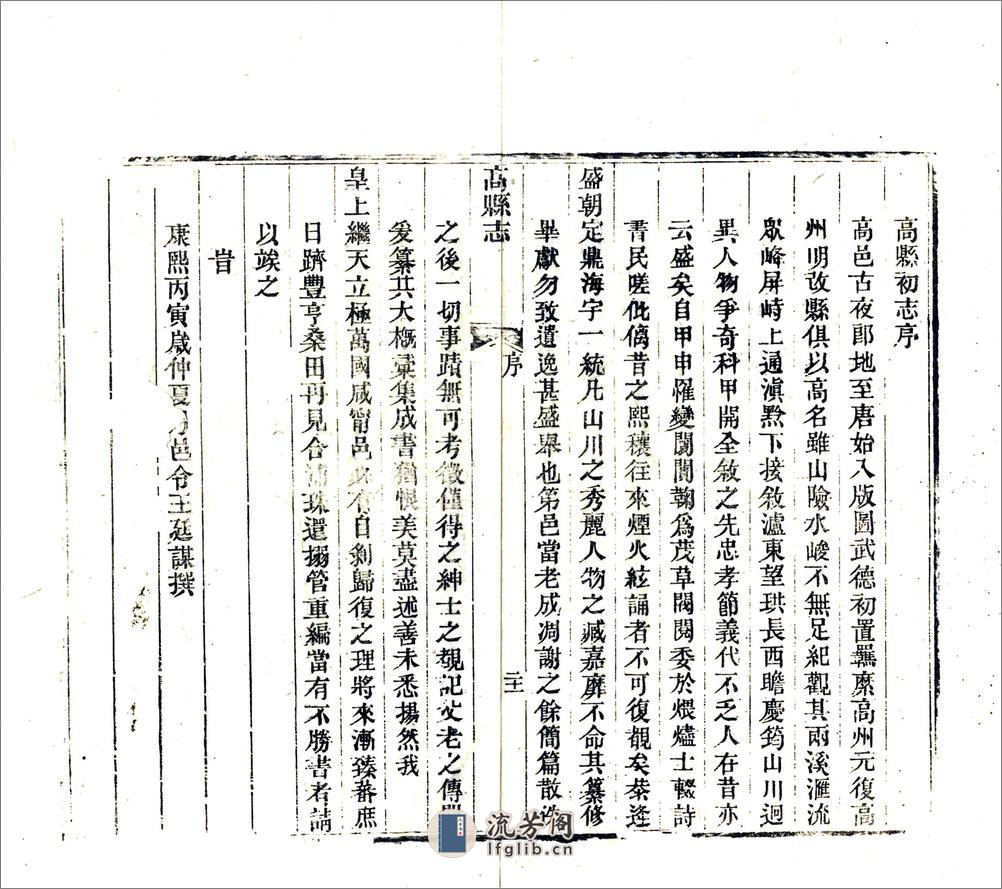 高縣初志序
高邑古夜郎地至唐始入版圖武德初置羈縻高州元復高
州明改縣俱以高名雖山險水峻不無足紀觀其兩溪滙流
眾峰屏峙上通滇黔下接敘瀘東望珙長西瞻慶筠山川迥
異人物爭奇科甲開全敘之先忠孝節義代不乏人在昔亦
云盛矣自甲申罹變闤闠鞠為茂草閥閱委於煨燼士輟詩
書民嗟仳傂昔之熙穰往來煙火絃誦者不可復覩矣茲逢
盛朝定鼎海宇一統凡山川之秀麗人物之臧嘉靡不命其纂修
畢獻勿致遺逸甚盛舉也第邑當老成凋謝之餘簡篇散
高縣志
序
二十一
之後一切事蹟無可考徵僅得之紳士之覩記父老之傳聞
爰纂其大概彙集成書猶恨美莫盡述善未悉揚然我
皇上繼天立極萬國咸甯邑必有自剝歸復之理將來漸臻蕃庶
日躋豐亨桑田再見合浦珠還搦管重編當有不勝書者請
以竢之
旹
康熙丙寅歲仲夏月邑令王廷謀撰
流芳閣
lfglib.cn